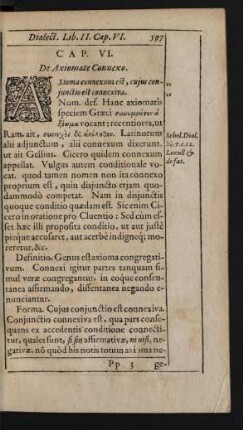 Dialect. Lib. II. Cap. VI. 597
CAP. VI.
De Axiomate Connexo.
AXioma connexum est, cujus con-
junctio est connexiva.
Nom. def. Hanc axiomatis
speciem Græci συνημμένον ἀ-
ξίωμα vocant: recentiores, ut
Ram. ait, Latinorum
alii adjunctum, alii connexum dixerunt,
ut ait Gellius. Cicero quidem connexum
appellat. Vulgus autem conditionale vo-
cat. quod tamen nomen non ita connexo
proprium est, quin disjuncto etiam quo-
dammodò competat. Nam in disjunctis
quoque conditio quædam est. Sic enim Ci-
cero in oratione pro Cluentio: Sed cum es-
set hæc illi proposita conditio, ut aut justè
pieque accusaret, aut acerbè indignéq; mo-
reretur, &c.
Definitio. Genus est axioma congregati-
vum. Connexi igitur partes tanquam si-
mul veræ congregantur. in eoque consen-
tanea affirmando, dissentanea negando e-
nunciantur.
Forma. Cujus conjunctio est connexiva.
Conjunctio connexiva est, qua pars conse-
quens ex accedentis conditione connecti-
tur, quales sunt, si sin affirmativæ, ni nisi, ne-
gativæ. nō quòd his notis totum axioma ne-
Pp 3 ge-
Schol. Dial.